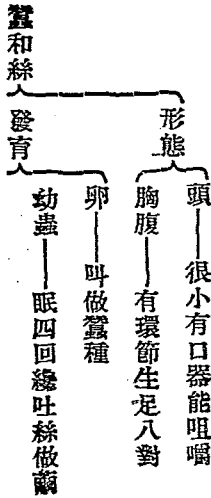 蠶和絲
形態
頭——很小有口器能咀嚼
胸腹——有環節生足八對
發育
卵——叫做蠶種
幼蟲——眠四回纔吐絲做繭